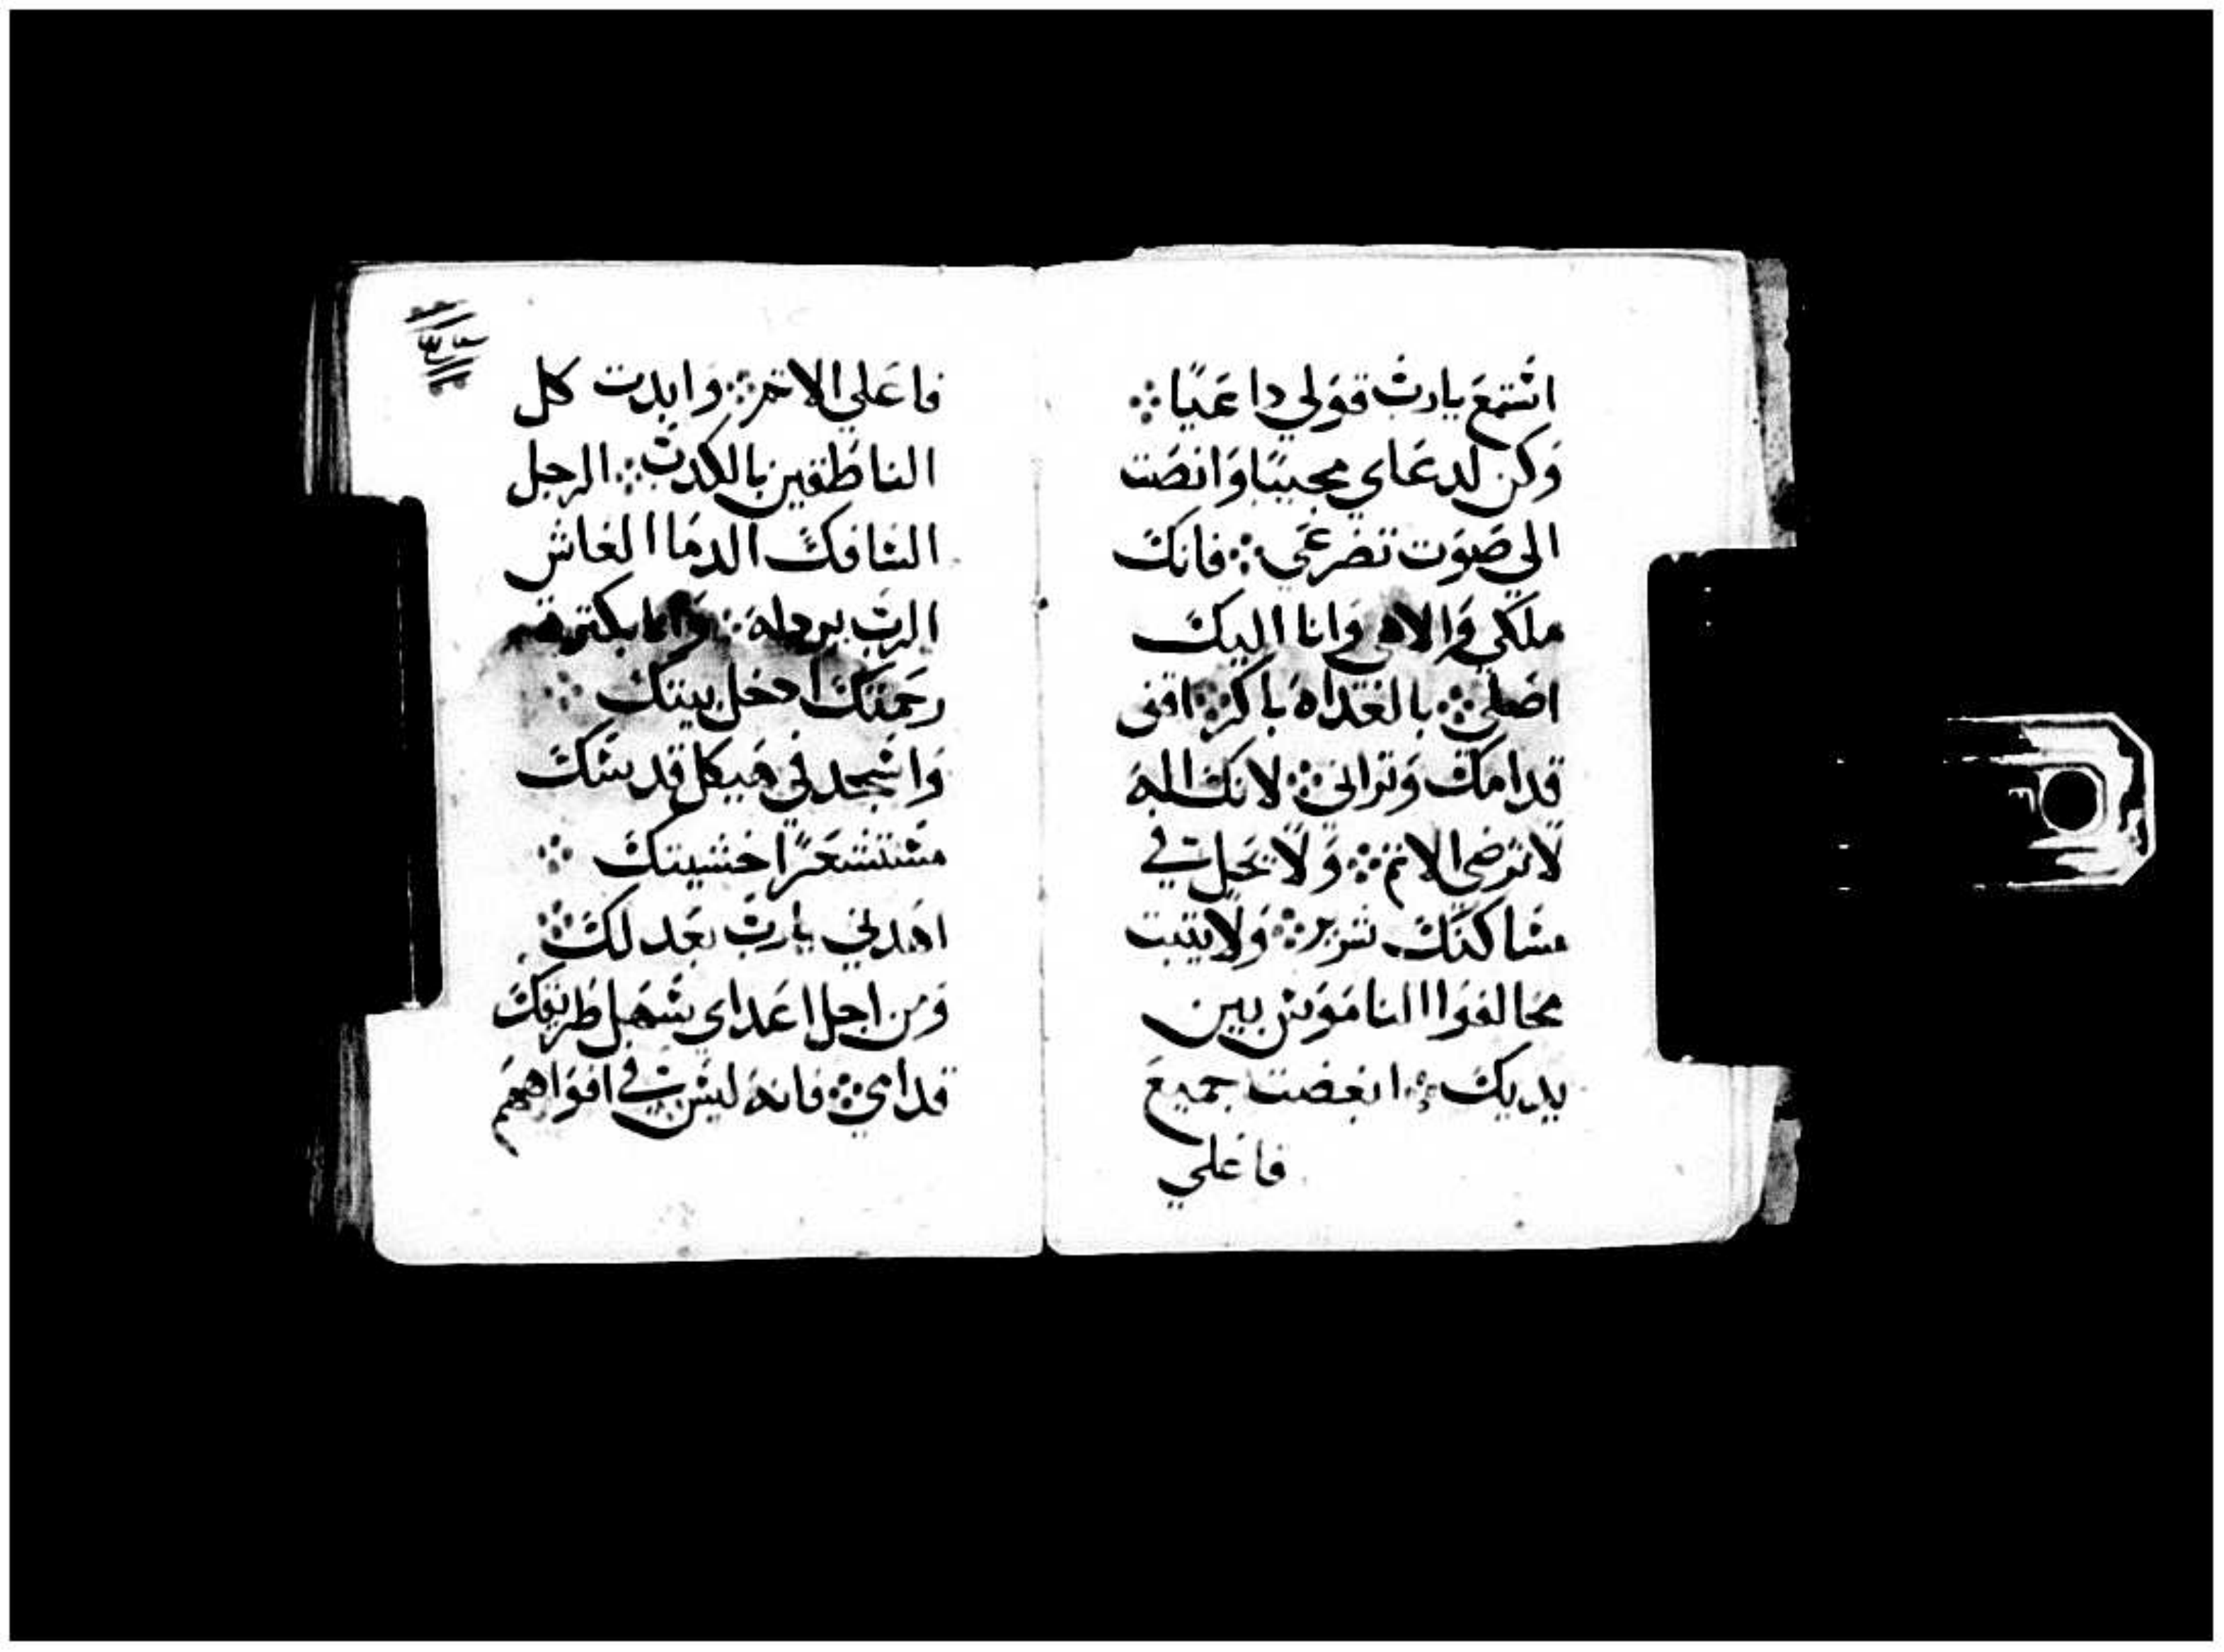 اشتمع يارب قولي داعيًا ⁘
وكن لدعاي مجيبًا وانصت
الي صوت تضرعي ⁘ فانك
ملكي والاهي وانا اليك
اصلي ⁘ بالغداه باكر ⁘ اقف
قدامك وتراني ⁘ لانك اله
لا ترضي الاتم ⁘ ولا يحل في
مساكنك شرير ⁘ ولا يتبت
مخالفوا الناموس بين
يديك ⁘ ابغضت جميع
فاعلي
فاعلي الاتم ⁘ وابدت كل
الناطقين بالكدب ⁘ الرجل
السافك الدما الغاش
الرب يردله ⁘ وانا بكترة
رحمتك ادخل بيتك ⁘
واسجد في هيكل قدسك
مستشعرًا خشيتك ⁘
اهدني يارب بعدلك ⁘
ومن اجل اعداي سهل طريقك
قدامي ⁘ فانه ليس في افواههم